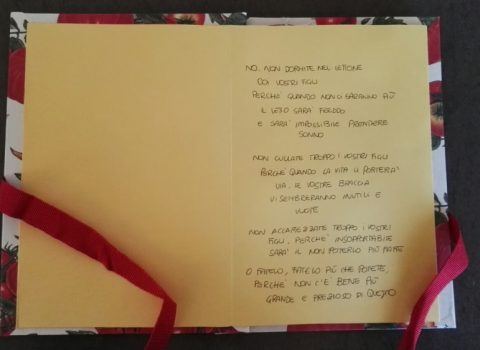 NO. NON DORMITE NEL LETTONE
COI VOSTRI FIGLI
PERCHE' QUANDO NON CI SARANNO PIÙ
IL LETTO SARA' FREDDO
E SARA' IMPOSSIBILE PRENDERE
SONNO
NON CULLATE TROPPO I VOSTRI FIGLI
PERCHE' QUANDO LA VITA LI PORTERA'
VIA, LE VOSTRE BRACCIA
VI SEMBRERANNO INUTILI E
VUOTE
NON ACCAREZZATE TROPPO I VOSTRI
FIGLI, PERCHE' INSOPPORTABILE
SARA' IL NON POTERLO PIÙ FARE
O FATELO, FATELO PIÙ CHE POTETE,
PERCHE' NON C'È BENE PIÙ
GRANDE E PREZIOSO DI QUESTO